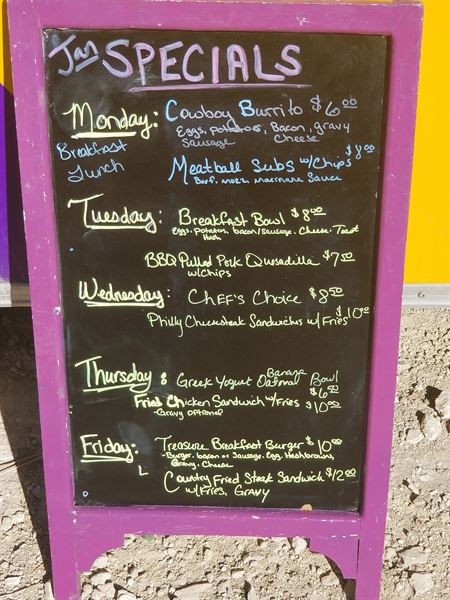 JM SPECIALS
Monday: Cowboy Burrito $6.00
Eggs, potatoes, Bacon, gravy
Sausage Cheese
Breakfast
Lunch
Meatball Subs w/Chips $8.00
Beef. mozz. marinara Sauce
Tuesday: Breakfast Bowl $8.00
Eggs, potatos, bacon/sausage. Cheese. Toast
Hash
BBQ Pulled Pork Quesadilla $7.50
w/chips
Wednesday: Chef's Choice $8.50
Philly Cheesesteak Sandwiches w/Fries $10.00
Thursday: Greek Yogurt Banana Oatmeal Bowl
$6.50
Fried Chicken Sandwich w/Fries $10.00
-Gravy optional
Friday: Treasure Breakfast Burger $10.00
-Burger, bacon or Sausage. Egg. Hashbrowns,
Gravy. Cheese
L Country Fried Steak Sandwich $12.00
w/Fries, Gravy